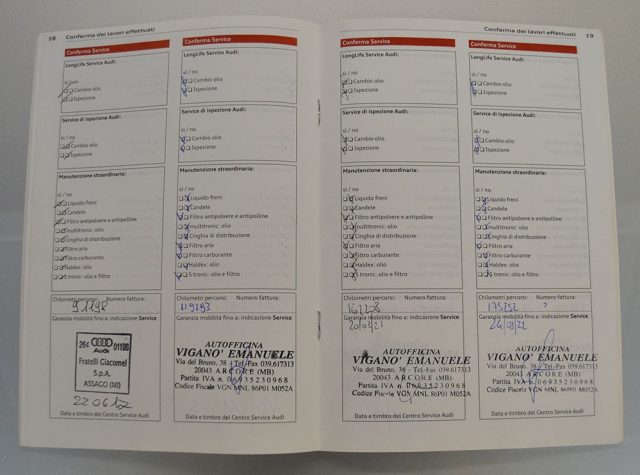 18 Conferma dei lavori effettuati
Conferma Service
LongLife Service Audi:
si / no
Cambio olio
Ispezione
Service di ispezione Audi:
si / no
Cambio olio
Ispezione
Manutenzione straordinaria:
si / no
Liquido freni
Candele
Filtro antipolvere e antipolline
multitronic: olio
Cinghia di distribuzione
Filtro aria
Filtro carburante
Haldex: olio
S tronic: olio e filtro
Chilometri percorsi: Numero fattura:
91198
Garanzia mobilità fino a: indicazione Service
264 Audi D1198
Audi
Fratelli Giacomel
S.p.A.
ASSAGO (MI)
Data e timbro del Centro Service Audi
Conferma Service
LongLife Service Audi:
si / no
Cambio olio
Ispezione
Service di ispezione Audi:
si / no
Cambio olio
Ispezione
Manutenzione straordinaria:
si / no
Liquido freni
Candele
Filtro antipolvere e antipolline
multitronic: olio
Cinghia di distribuzione
Filtro aria
Filtro carburante
Haldex: olio
S tronic: olio e filtro
Chilometri percorsi: Numero fattura:
119293
Garanzia mobilità fino a: indicazione Service
AUTOFFICINA
VIGANO' EMANUELE
Via del Bruno, 38 - Tel./Fax 039.617313
20043 ARCORE (MB)
Partita IVA n. 06935230968
Codice Fiscale VGN MNL 86P01 M052A
Data e timbro del Centro Service Audi
Conferma dei lavori effettuati 19
Conferma Service
LongLife Service Audi:
si / no
Cambio olio
Ispezione
Service di ispezione Audi:
si / no
Cambio olio
Ispezione
Manutenzione straordinaria:
si / no
Liquido freni
Candele
Filtro antipolvere e antipolline
multitronic: olio
Cinghia di distribuzione
Filtro aria
Filtro carburante
Haldex: olio
S tronic: olio e filtro
Chilometri percorsi: Numero fattura:
162208
Garanzia mobilità fino a: indicazione Service
20/03/21
AUTOFFICINA
VIGANO' EMANUELE
Via del Bruno, 38 - Tel./Fax 039.617313
20043 ARCORE (MB)
Partita IVA n. 06935230968
Codice Fiscale VGN MNL 86P01 M052A
Data e timbro del Centro Service Audi
Conferma Service
LongLife Service Audi:
si / no
Cambio olio
Ispezione
Service di ispezione Audi:
si / no
Cambio olio
Ispezione
Manutenzione straordinaria:
si / no
Liquido freni
Candele
Filtro antipolvere e antipolline
multitronic: olio
Cinghia di distribuzione
Filtro aria
Filtro carburante
Haldex: olio
S tronic: olio e filtro
Chilometri percorsi: Numero fattura:
175252
Garanzia mobilità fino a: indicazione Service
24/03/22
AUTOFFICINA
VIGANO' EMANUELE
Via del Bruno, 38 - Tel./Fax 039.617313
20043 ARCORE (MB)
Partita IVA n. 06935230968
Codice Fiscale VGN MNL 86P01 M052A
Data e timbro del Centro Service Audi